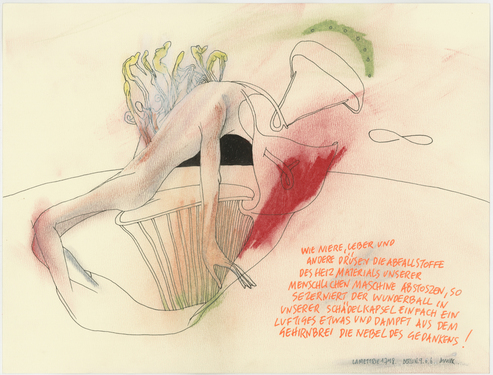 WIE NIERE, LEBER UND
ANDERE DRÜSEN DIE ABFALLSTOFFE
DES HEIZ MATERIALS UNSERER
MENSCHLICHEN MASCHINE ABSTOSZEN, SO
SEZERNIERT DER WUNDERBALL IN
UNSERER SCHÄDELKAPSEL EINFACH EIN
LUFTIGES ETWAS UND DAMPFT AUS DEM
GEHIRNBREI DIE NEBEL DES GEDANKENS!